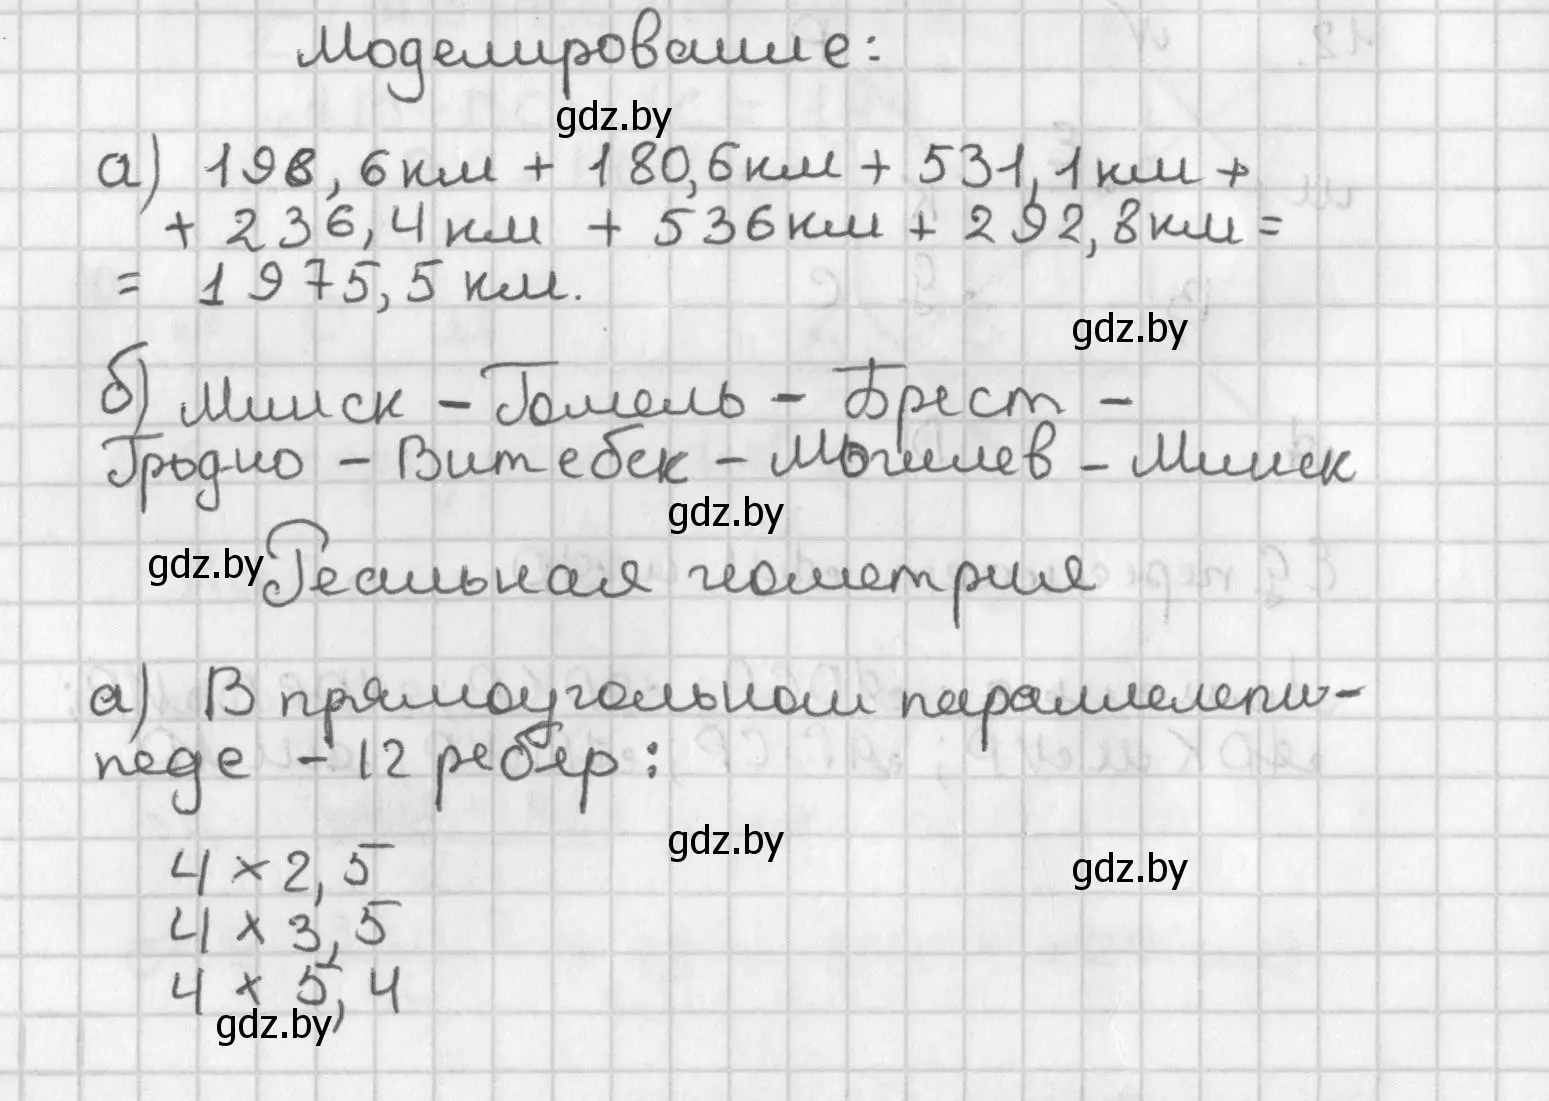 Моделирование:
gdz.by
а) 198,6 км + 180,6 км + 531,1 км +
+ 236,4 км + 536 км + 292,8 км =
= 1975,5 км.
gdz.by
б) Минск - Гомель - Брест -
Гродно - Витебск - Могилев - Минск
gdz.by
gdz.by
Реальная геометрия
а) В прямоугольном параллелепи-
педе - 12 ребер:
gdz.by
gdz.by
4 × 2,5
4 × 3,5
4 × 5,4
gdz.by